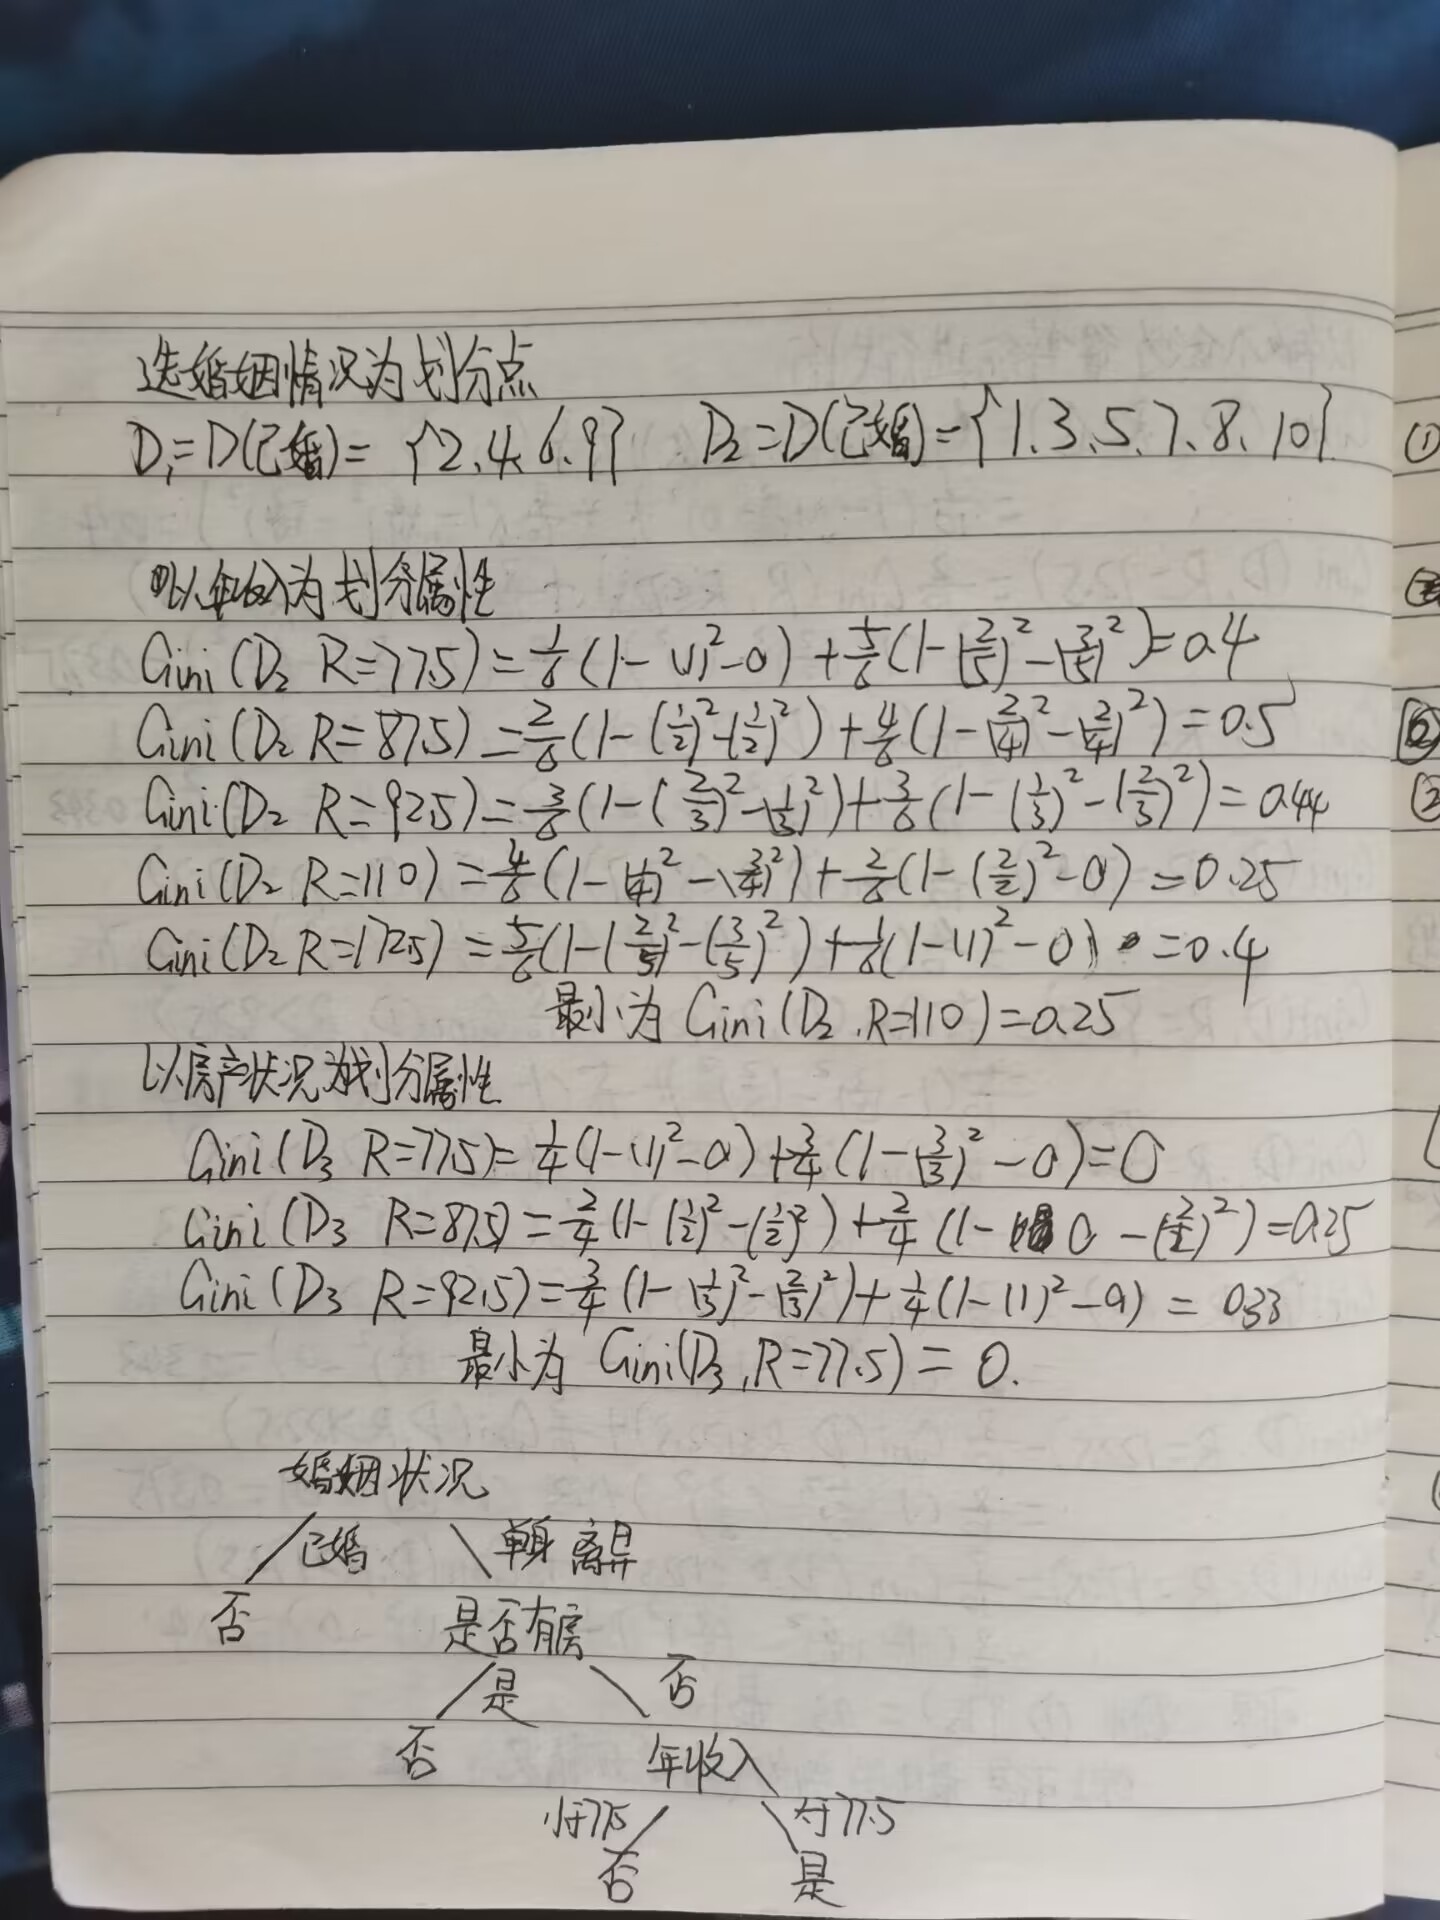 选婚姻情况为划分点
D₁=D(已婚)={2.4.6.9} D₂=D(已婚)={1.3.5.7.8.10}
①以年收入为划分属性
Gini(D₂ R=77.5)=1/6(1-(1)²-0)+5/6(1-(2/5)²-(3/5)²)=0.4
Gini(D₂ R=87.5)=2/6(1-(1/2)²-(1/2)²)+4/6(1-(2/4)²-(2/4)²)=0.5
Gini(D₂ R=92.5)=3/6(1-(2/3)²-(1/3)²)+3/6(1-(1/3)²-(2/3)²)=0.44
Gini(D₂ R=110)=4/6(1-(1/4)²-(3/4)²)+2/6(1-(2/2)²-0)=0.25
Gini(D₂ R=172.5)=5/6(1-(2/5)²-(3/5)²)+1/6(1-(1)²-0)=0.4
最小为 Gini(D₂.R=110)=0.25
以房产状况为划分属性
Gini(D₃ R=77.5)=1/4(1-(1)²-0)+3/4(1-(3/3)²-0)=0
Gini(D₃ R=87.5)=2/4(1-(1/2)²-(1/2)²)+2/4(1-0-(2/2)²)=0.25
Gini(D₃ R=92.5)=3/4(1-(1/3)²-(2/3)²)+1/4(1-(1)²-0)=0.33
最小为 Gini(D₃,R=77.5)=0.
婚姻状况
已婚 单身 离异
否 是否有房
是 否
否 年收入
小于77.5 大于77.5
否 是
①
②